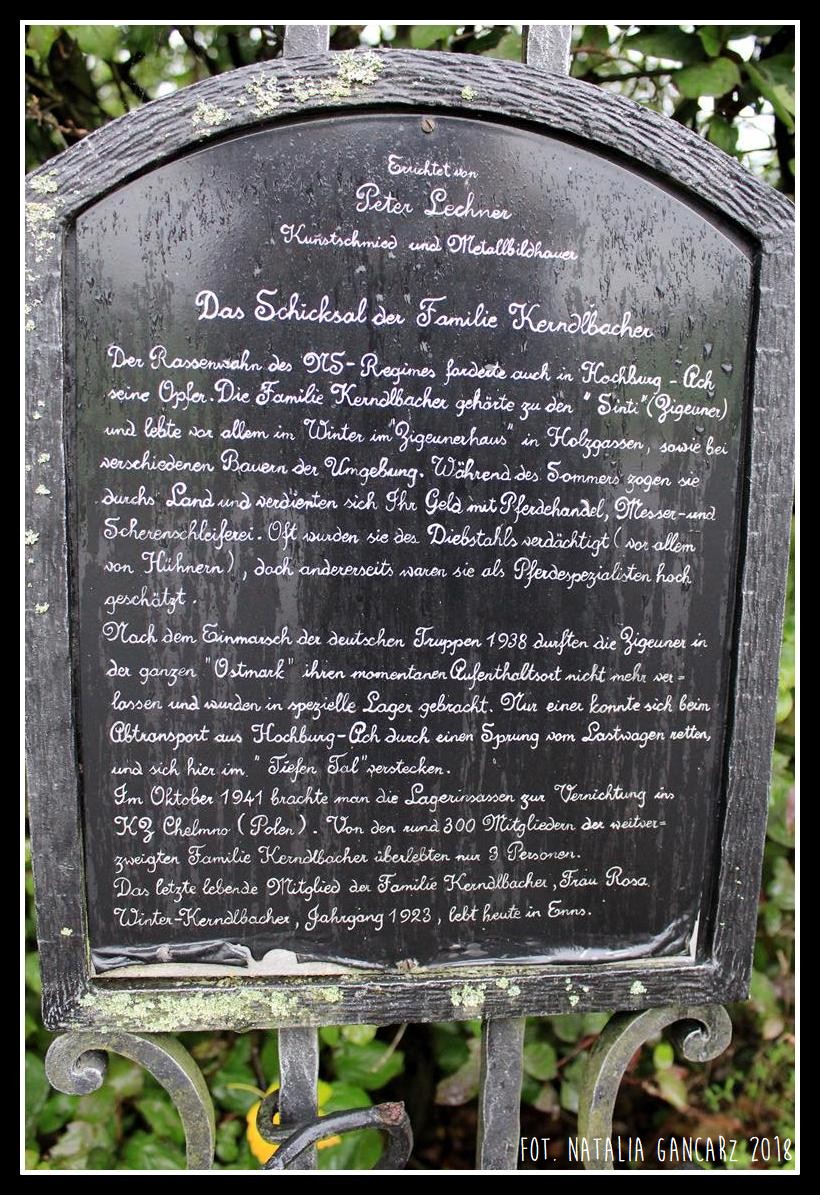 Errichtet von
Peter Lechner
Kunstschmied und Metallbildhauer
Das Schicksal der Familie Kerndlbacher
Der Rassenwahn des NS-Regimes forderte auch in Hochburg - Ach
seine Opfer. Die Familie Kerndlbacher gehörte zu den "Sinti" (Zigeuner)
und lebte vor allem im Winter im "Zigeunerhaus" in Holzgassen, sowie bei
verschiedenen Bauern der Umgebung. Während des Sommers zogen sie
durchs Land und verdienten sich Ihr Geld mit Pferdehandel, Messer-und
Scherenschleiferei. Oft wurden sie des Diebstahls verdächtigt (vor allem
von Hühnern), doch andererseits waren sie als Pferdespezialisten hoch
geschätzt.
Nach dem Einmarsch der deutschen Truppen 1938 durften die Zigeuner in
der ganzen "Ostmark" ihren momentanen Aufenthaltsort nicht mehr ver=
lassen und wurden in spezielle Lager gebracht. Nur einer konnte sich beim
Abtransport aus Hochburg-Ach durch einen Sprung vom Lastwagen retten,
und sich hier im "Tiefen Tal" verstecken.
Im Oktober 1941 brachte man die Lagerinsassen zur Vernichtung ins
KZ Chelmno (Polen). Von den rund 300 Mitgliedern der weitver=
zweigten Familie Kerndlbacher überlebten nur 3 Personen.
Das letzte lebende Mitglied der Familie Kerndlbacher, Frau Rosa
Winter-Kerndlbacher, Jahrgang 1923, lebt heute in Enns.
FOT. NATALIA GANCARZ 2018